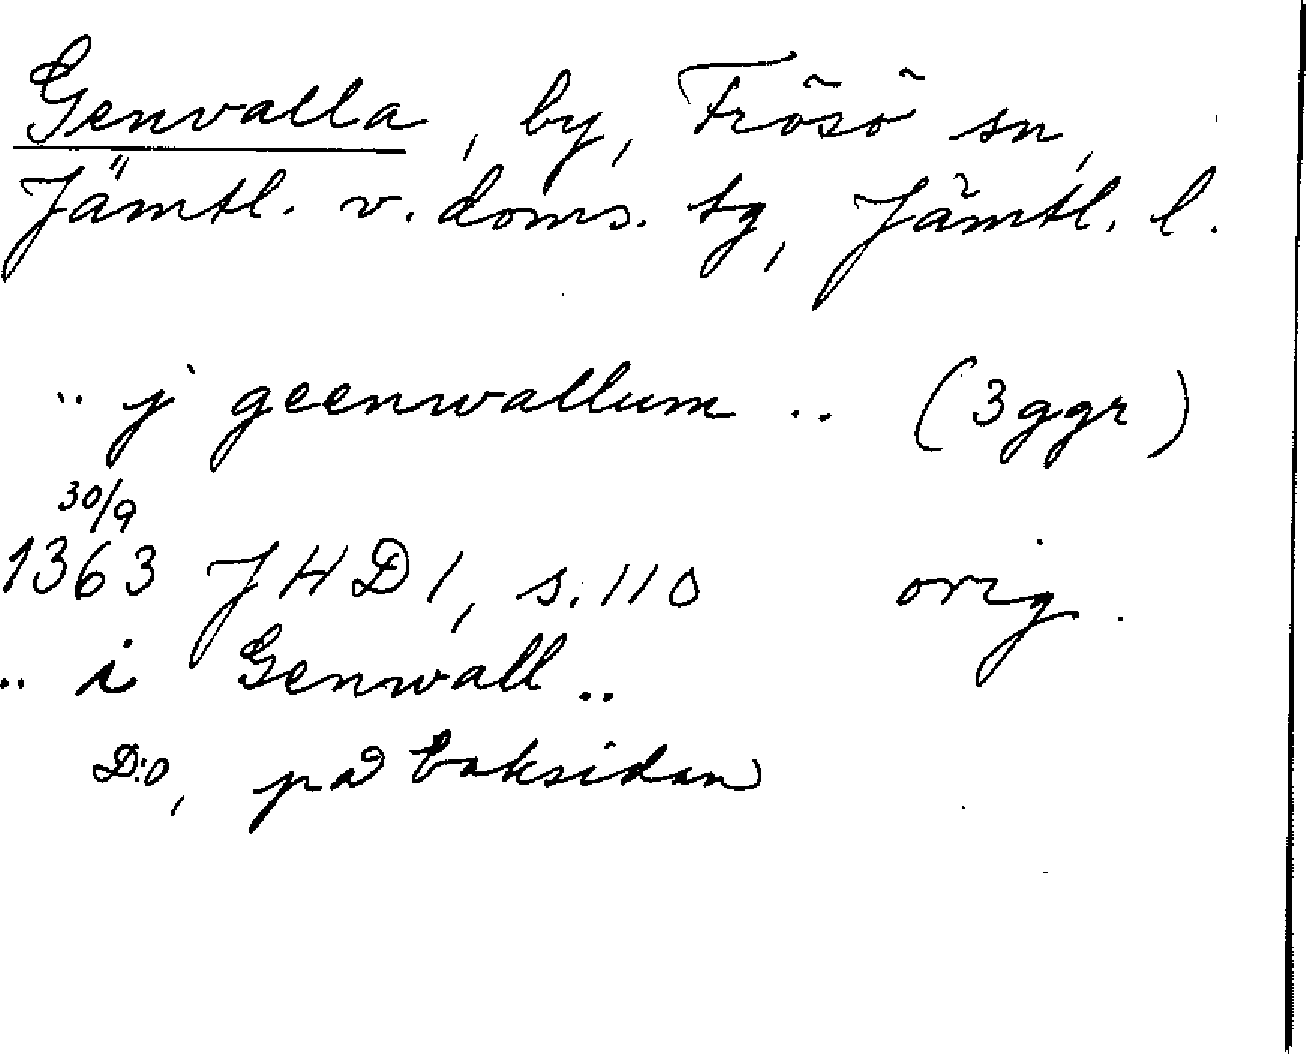 Genvalla, by, Frösö sn,
Jämtl. v. doms. tg, Jämtl. l.
.. j geenwallum .. (3 ggr)
30/9
1363 JHD 1, s. 110 orig.
.. i Genwall ..
D:o, på baksidan